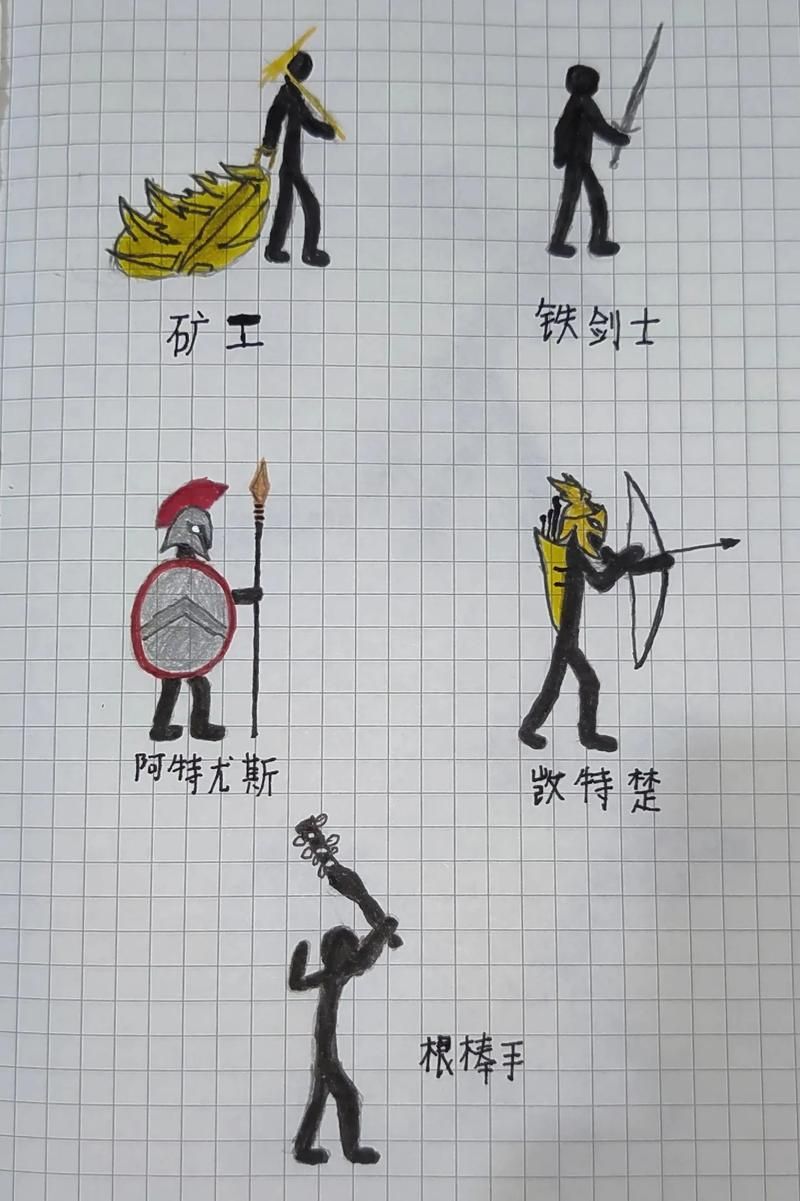 矿工
铁剑士
阿特尤斯
敳特楚
棍棒手